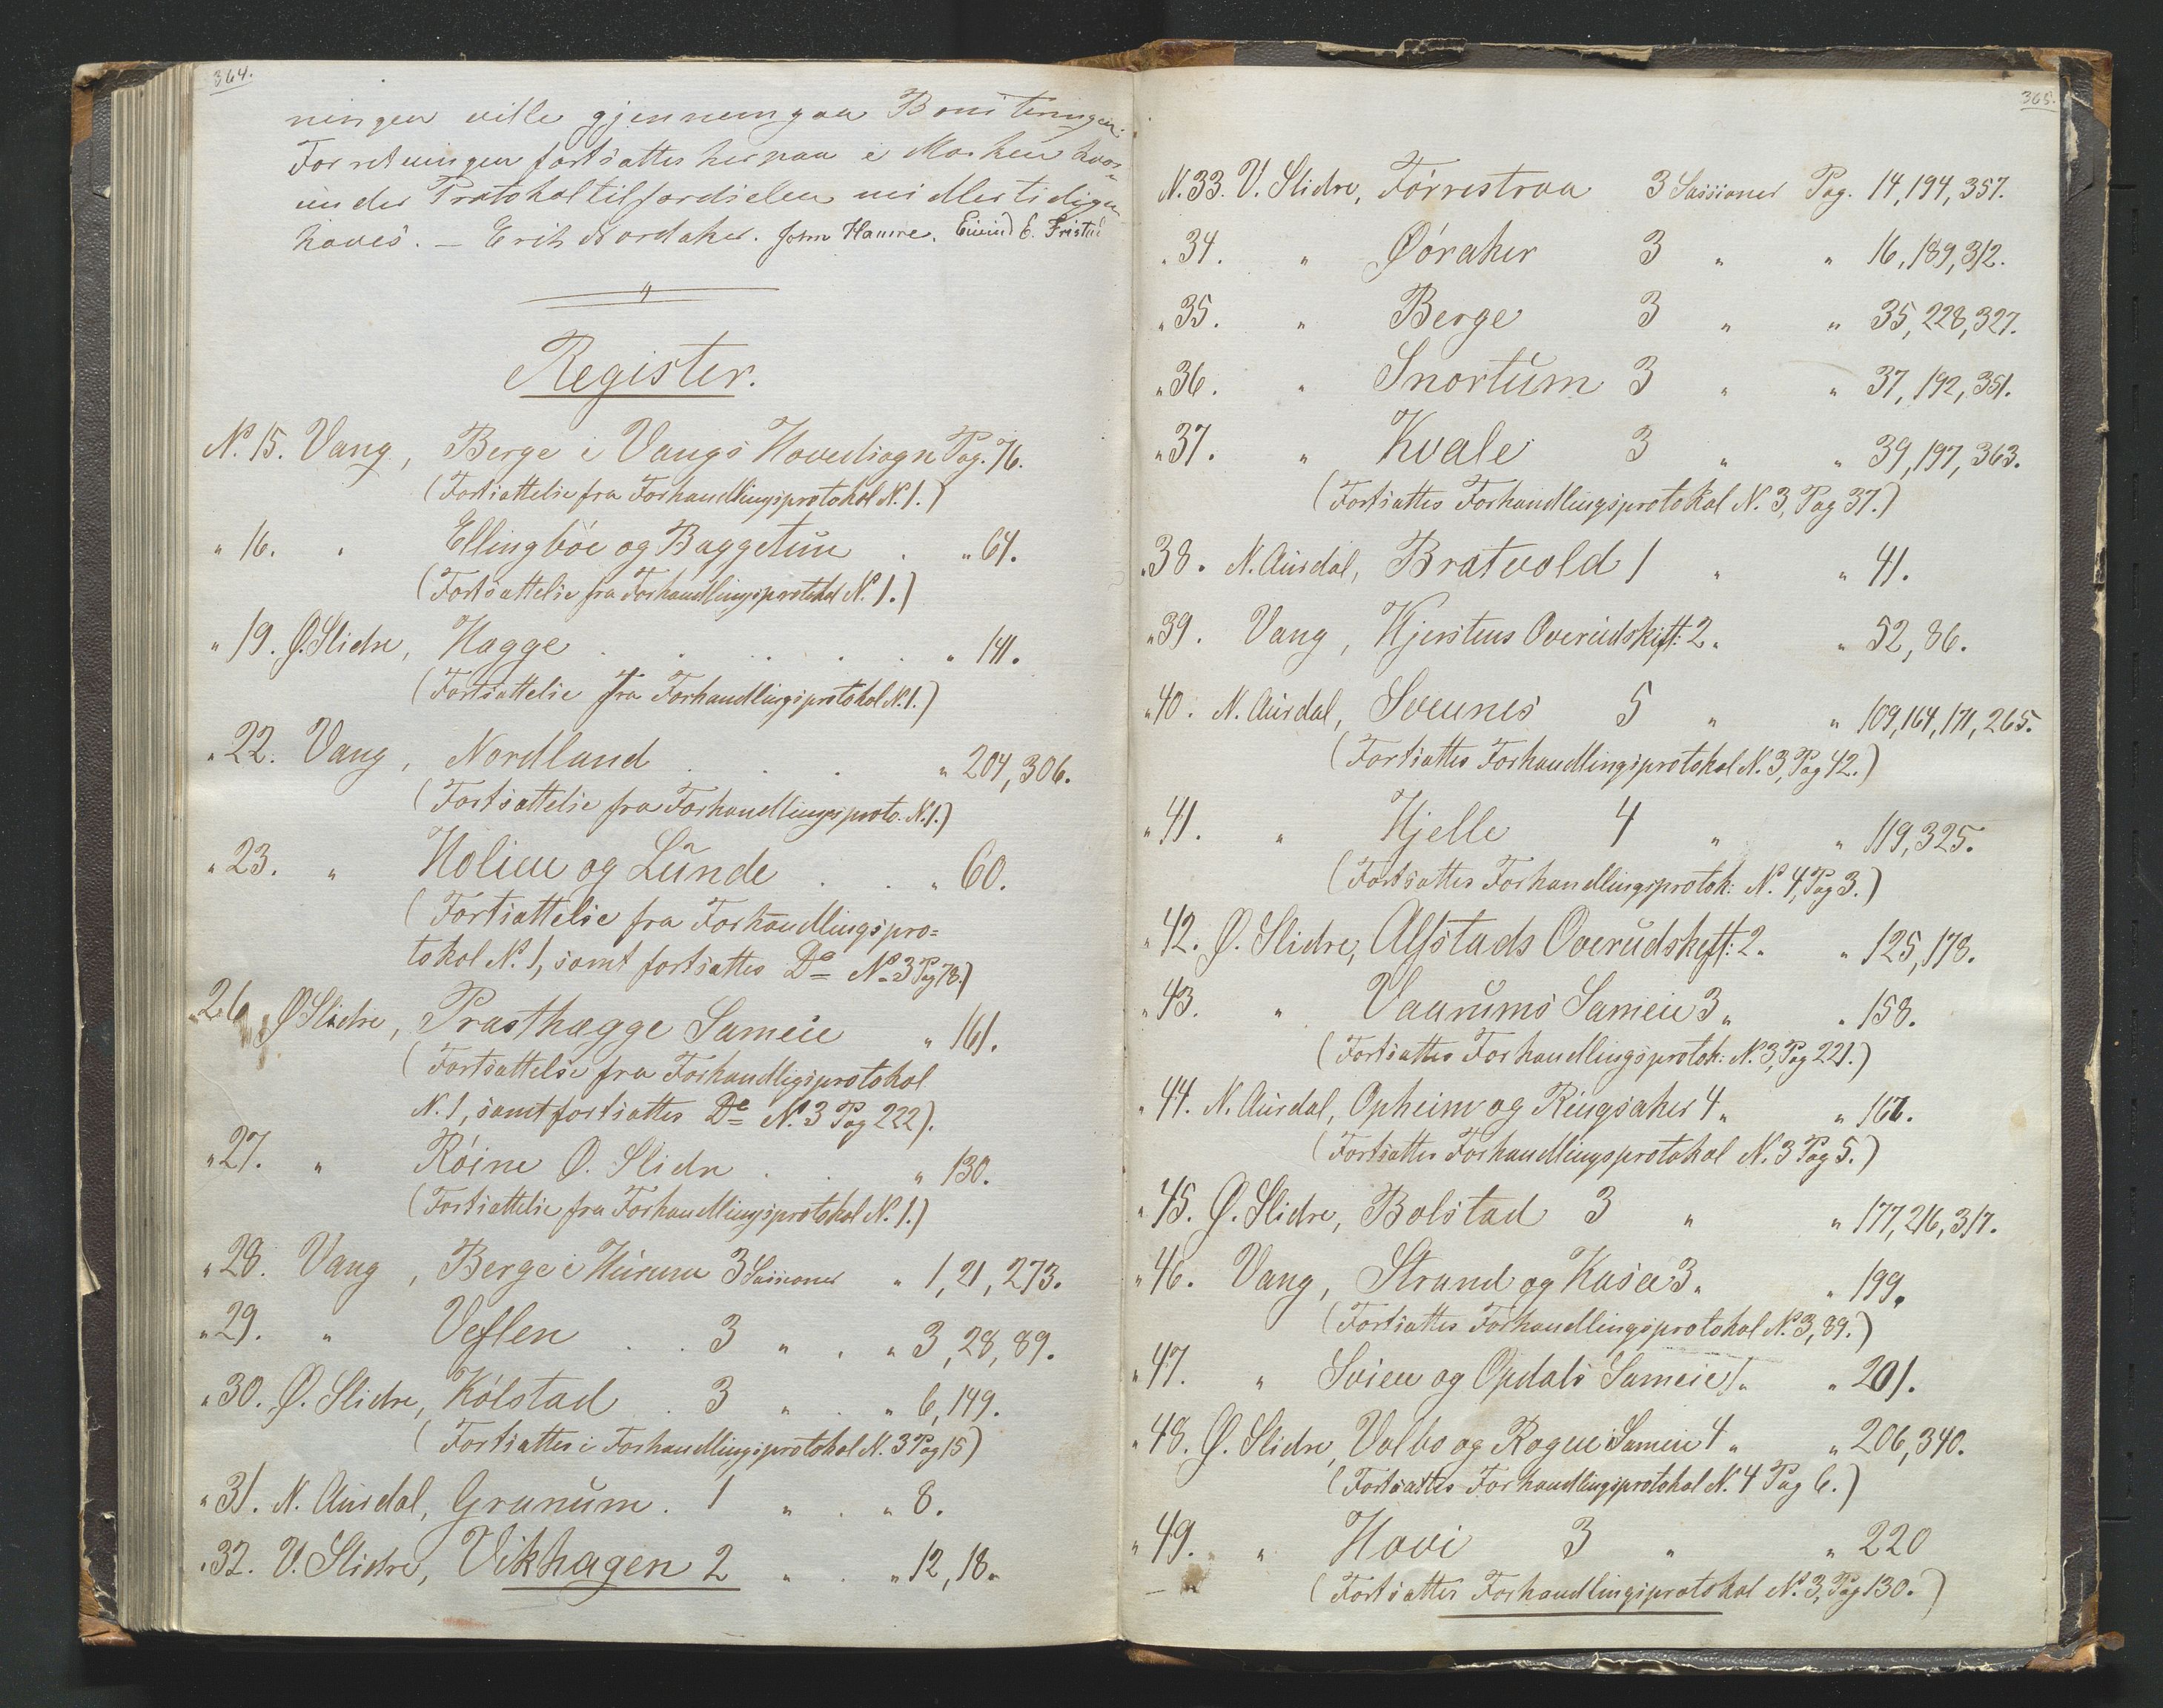 364.
ningen ville gjennemgaa Boniteringen.
Forretningen fortsattes herpaa i Marken hvor-
under Protokoltilførdselen midlertidigen
haves. — Erik Nordaker. John Hamre. Eivind E. Fristad
Register.
N. 15. Vang, Berge i Vangs Hovedsogn Pag. 76.
(Fortsættelse fra Forhandlingsprotokol N. 1.)
" 16. " Ellingböe og Baggetun . " 64.
(Fortsættelse fra Forhandlingsprotokol N. 1.)
" 19. Ø. Slidre, Hagge . . . . . " 141.
(Fortsættelse fra Forhandlingsprotokol N. 1.)
" 22. Vang, Nordland . . . " 204, 306.
(Fortsættelse fra Forhandlingsproto. N. 1.)
" 23. " Holien og Lunde . . " 60.
(Fortsættelse fra Forhandlingspro=
tokol N. 1, samt fortsattes Do N. 3 Pag 78.)
" 26. Ø Slidre, Præsthægge Sameie " 161.
(Fortsættelse fra Forhandligsprotokol
N. 1, samt fortsattes Do N. 3 Pag 222).
" 27. " Röine Ø. Slidre . . " 130.
(Fortsættelse fra Forhandlingsprotokol N. 1.)
" 28. Vang, Berge i Hurum 3 Sessioner " 1, 21, 273.
" 29. " Veflen . . 3 " . " 3, 28, 89.
" 30. Ø. Slidre, Kölstad . 3 " . " 6, 149.
(Fortsattes i Forhandlingsprotokol N. 3 Pag 15)
" 31. N. Aurdal, Granum . 1 " . " 8.
" 32. V. Slidre, Vikhagen 2 " . " 12, 18.
365.
N. 33. V. Slidre, Förrestraa 3 Sessioner Pag. 14, 194, 357.
" 34. " Öóraker 3 " " 16, 189, 312.
" 35. " Berge 3 " " 35, 228, 327.
" 36. " Snortum 3 " " 37, 192, 351.
" 37. " Kvale 3 " " 39, 197, 363.
(Fortsattes Forhandlingsprotokol N. 3, Pag 37.)
" 38. N. Aurdal, Bratvold 1 " " 41.
" 39. Vang, Kjerstens Overudskift: 2 " " 52, 86.
" 40. N. Aurdal, Svennes 5 " " 109, 164, 171, 265.
(Fortsattes Forhandlingsprotokol N. 3, Pag 42.)
" 41. " Hjelle 4 " " 119, 325.
(Fortsattes Forhandlingsprotok: N. 4, Pag 3.)
" 42. Ø. Slidre, Alfstads Overudskift: 2 " " 125, 178.
" 43. " Vaarums Sameie 3 " " 158.
(Fortsattes Forhandlingsprotok: N. 3, Pag 221.)
" 44. N. Aurdal, Opheim og Ringsaker 4 " "
(Fortsattes Forhandlingsprotokol N. 3 Pag 5.)
" 45. Ø. Slidre, Bolstad 3 " " 177, 216, 317.
" 46. Vang, Strand og Kasa 3 " " 199.
(Fortsattes Forhandlingsprotokol N. 3, 89.)
" 47. " Svien og Opdals Sameie 1 " " 201.
" 48. Ø. Slidre, Volbo og Rogne Sameie 4 " " 206, 340.
(Fortsattes Forhandlingsprotokol N. 4 Pag 6.)
" 49. " Hovi 3 " " 220
(Fortsattes Forhandlingsprotokol N. 3, Pag 130.)